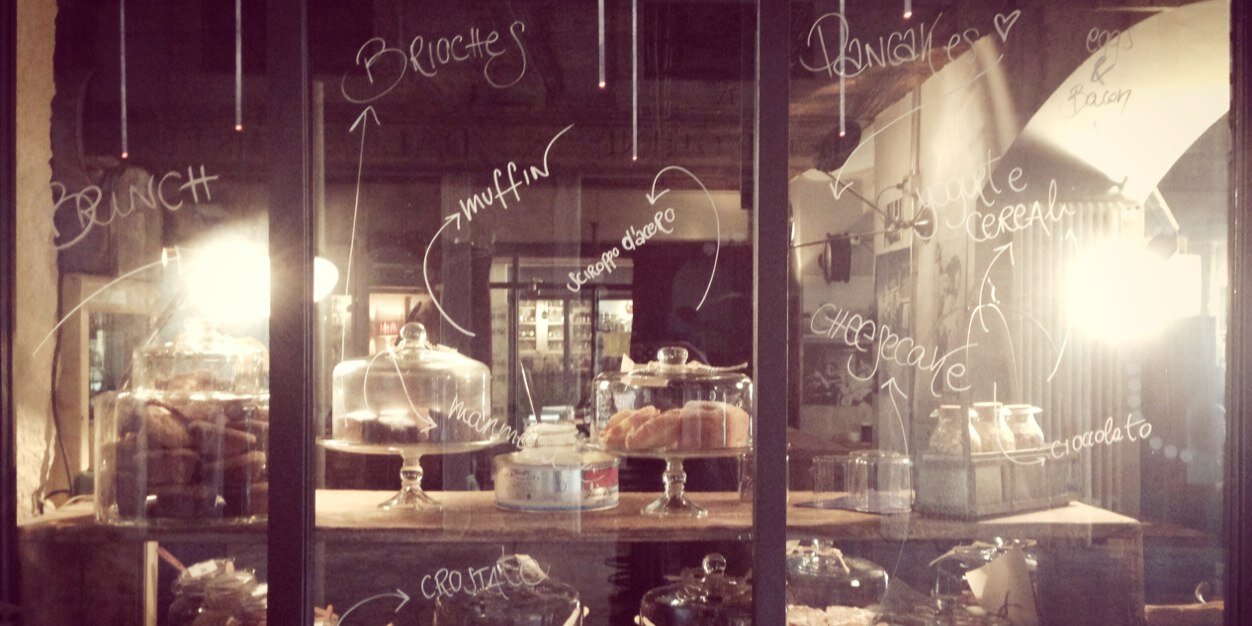 BRUNCH
BRIOCHES
muffin
sciroppo d'acero
PANCAKES
eggs
&
Bacon
yogurt e
CEREALI
CHEESECAKE
cioccolato
CROSTATE